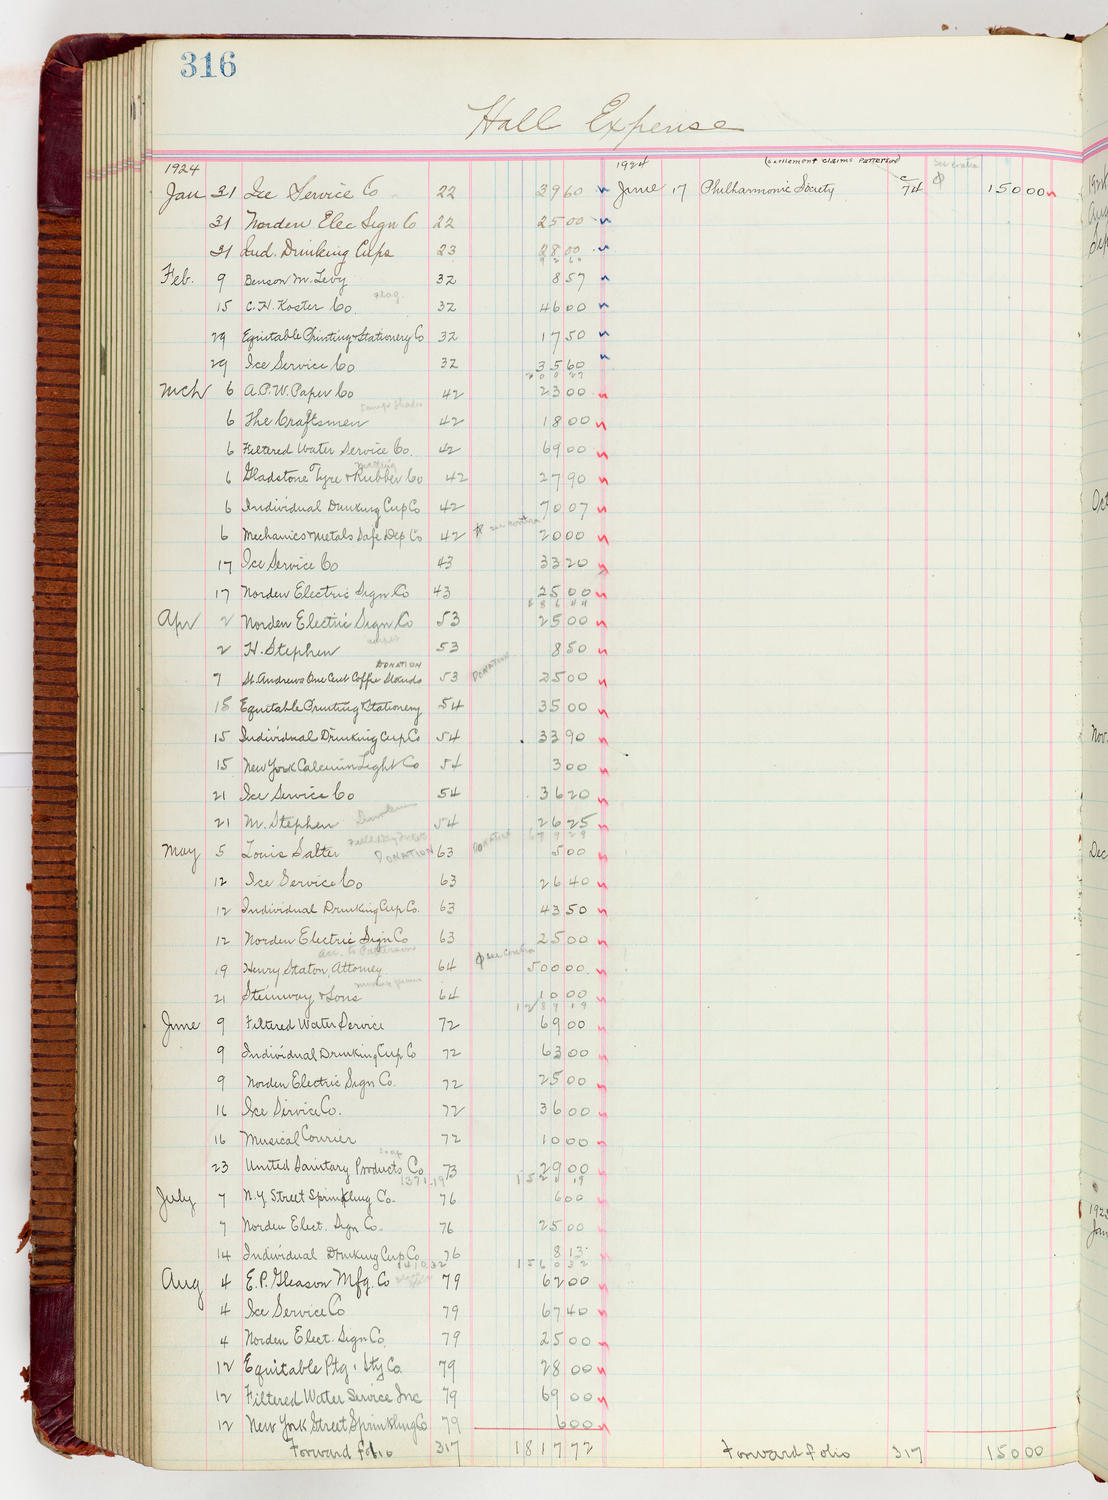 316
Hall Expense
1924
Jan 31 Ice Service Co 22 39 60
31 Norden Elec Sign Co 22 25 00
31 Ind. Drinking Cups 23 28 00
92 60
Feb. 9 Benson M. Levy 32 8 57
flag
15 C. H. Koster Co. 32 46 00
29 Equitable Printing & Stationery Co 32 17 50
29 Ice Service Co 32 35 60
Mch 6 A.P.W. Paper Co 42 23 00
6 The Craftsmen 42 18 00
6 Filtered Water Service Co. 42 69 00
matting
6 Gladstone Tyre & Rubber Co 42 27 90
6 Individual Drinking Cup Co 42 70 07
6 Mechanics & Metals Safe Dep Co 42 see contra 20 00
17 Ice Service Co 43 33 20
17 Norden Electric Sign Co 43 25 00
Apr 2 Norden Electric Sign Co 53 25 00
2 H. Stephen 53 8 50
DONATION
7 St. Andrews One Cent Coffee Stands 53 DONATION 25 00
15 Equitable Printing & Stationery 54 35 00
15 Individual Drinking Cup Co 54 33 90
15 New York Calcium Light Co 54 3 00
21 Ice Service Co 54 36 20
21 M. Stephen 54 26 25
679 29
May 5 Louis Salter DONATION 63 DONATION 5 00
12 Ice Service Co 63 26 40
12 Individual Drinking Cup Co. 63 43 50
12 Norden Electric Sign Co 63 25 00
acc. to Patterson
19 Henry Staton, Attorney 64 see contra 500 00
21 Steinway & Sons 64 10 00
1289 19
June 9 Filtered Water Service 72 69 00
9 Individual Drinking Cup Co 72 63 00
9 Norden Electric Sign Co. 72 25 00
16 Ice Service Co. 72 36 00
16 Musical Courier 72 10 00
soap
23 United Sanitary Products Co 73 29 00
1371.19 1521 19
July 7 N.Y. Street Sprinkling Co. 76 6 00
7 Norden Elect. Sign Co. 76 25 00
14 Individual Drinking Cup Co 76 8 13
1410.32 1560 32
Aug 4 E.P. Gleason Mfg. Co 79 62 00
4 Ice Service Co 79 67 40
4 Norden Elect. Sign Co. 79 25 00
12 Equitable Ptg & Sty Co. 79 28 00
12 Filtered Water Service Inc 79 69 00
12 New York Street Sprinkling Co 79 6 00
Forward folio 317 1817 72
1924
(settlement claims Patterson) see contra
June 17 Philharmonic Society C 74 150 00
Forward folio 317 150 00
Oct
Nov.
Dec